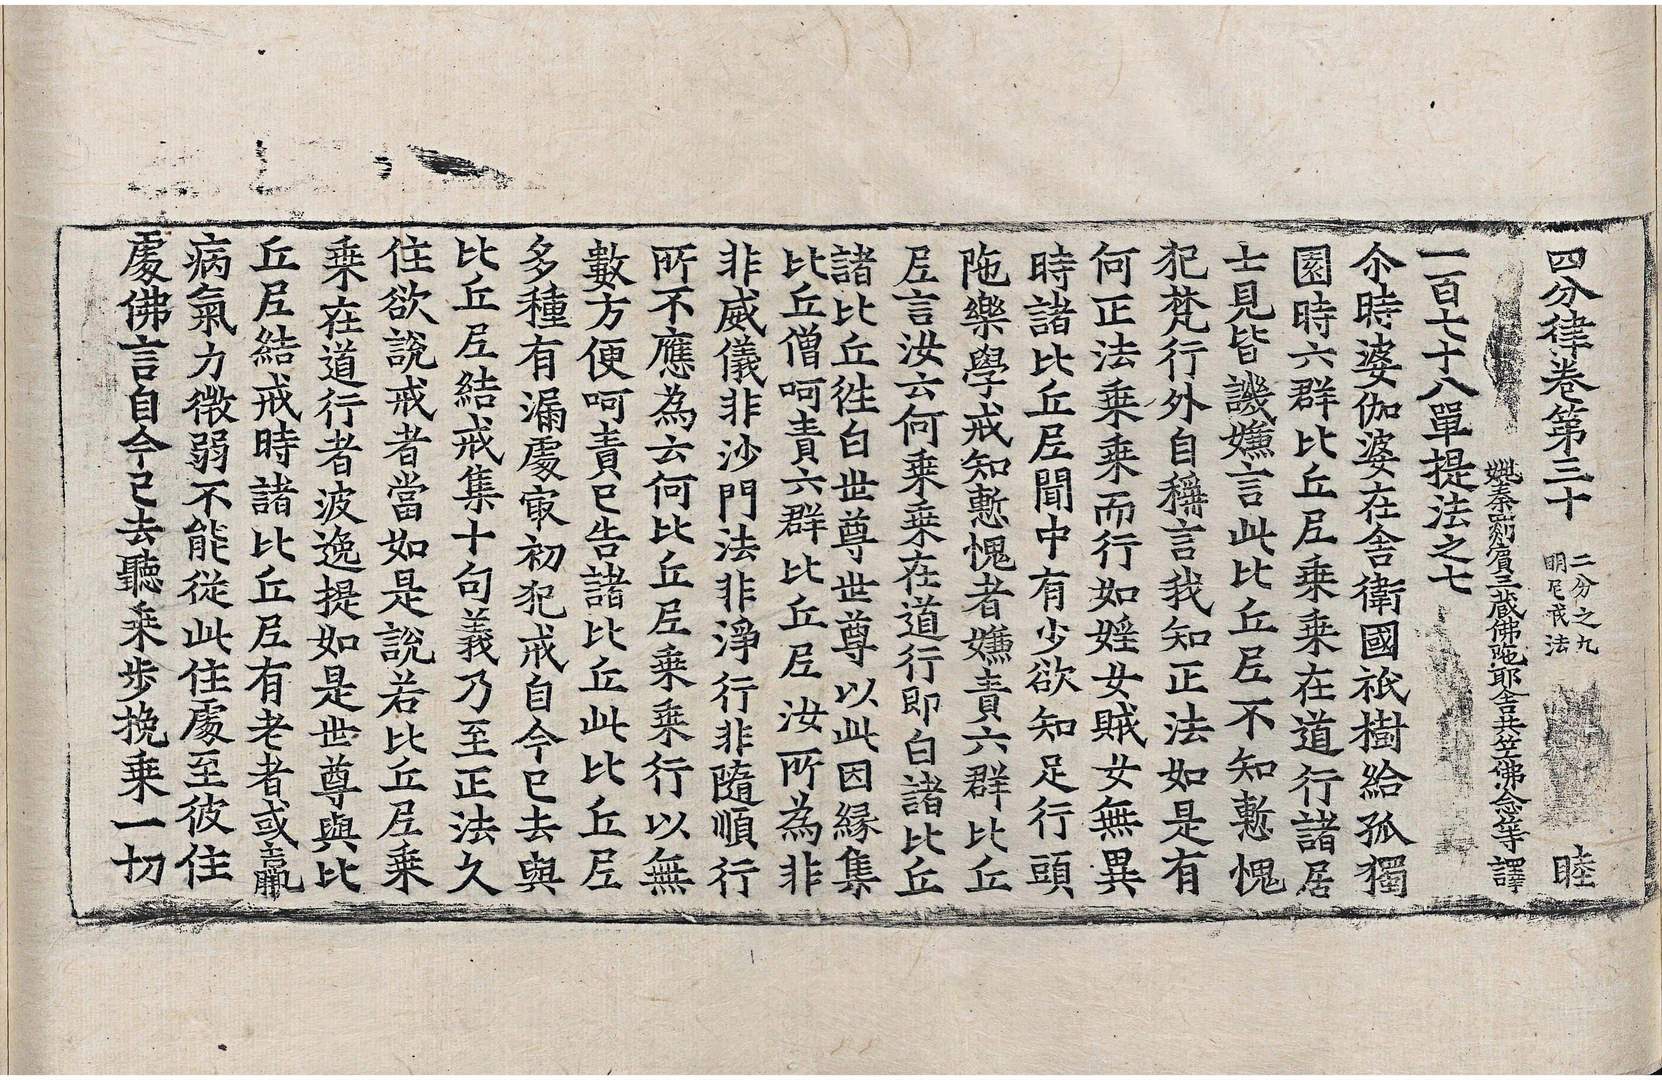 四分律卷第三十 二分之九 明尼戒法 睦
姚秦罽賓三藏佛陁耶舍共竺佛念等譯
一百七十八單提法之七
尒時婆伽婆在舍衛國祇樹給孤獨
園時六群比丘尼乘乘在道行諸居
士見皆譏嫌言此比丘尼不知慙愧
犯梵行外自稱言我知正法如是有
何正法乘乘而行如婬女賊女無異
時諸比丘尼聞中有少欲知足行頭
陁樂學戒知慙愧者嫌責六群比丘
尼言汝云何乘乘在道行即白諸比丘
諸比丘徃白世尊世尊以此因緣集
比丘僧呵責六群比丘尼汝所為非
非威儀非沙門法非淨行非隨順行
所不應為云何比丘尼乘乘行以無
數方便呵責已告諸比丘此比丘尼
多種有漏處㝡初犯戒自今已去與
比丘尼結戒集十句義乃至正法久
住欲說戒者當如是說若比丘尼乘
乘在道行者波逸提如是世尊與比
丘尼結戒時諸比丘尼有老者或羸
病氣力微弱不能從此住處至彼住
處佛言自今已去聽乘步挽乘一切